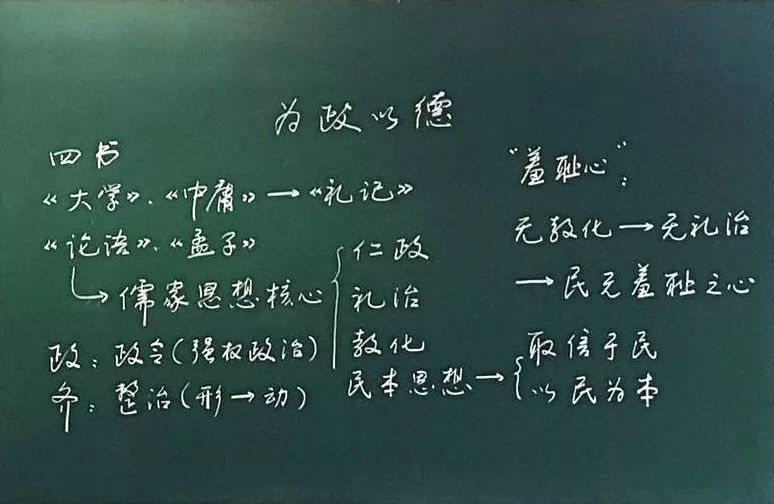 为政以德
四书
《大学》、《中庸》→《礼记》
《论语》、《孟子》
↳儒家思想核心
仁政
礼治
教化
民本思想→
取信于民
以民为本
政：政令(强权政治)
齐：整治(形→动)
"羞耻心"：
无教化→无礼治
→民无羞耻之心